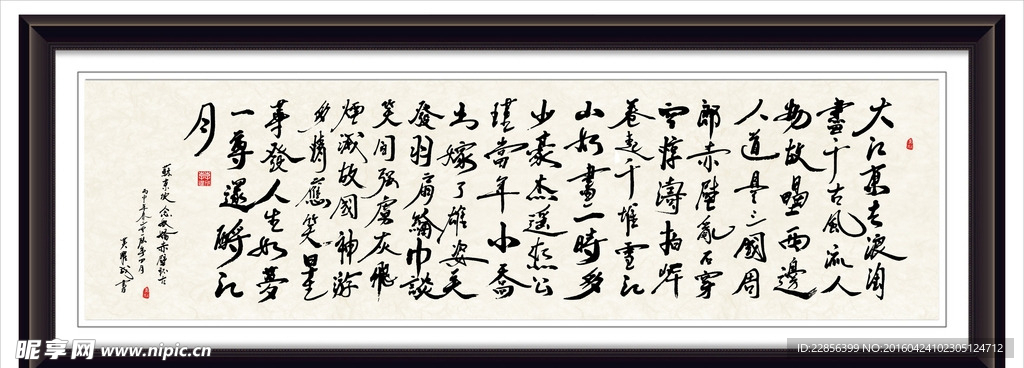 大江東去浪淘
盡千古風流人
物故壘西邊
人道是三國周
郎赤壁亂石穿
空驚濤拍岸
卷起千堆雪江
山如畫一時多
少豪杰遥想公
瑾當年小喬
出嫁了雄姿英
發羽扇綸巾談
笑間强虜灰飛
煙滅故國神游
多情應笑我早生
華發人生如夢
一尊還酹江
月
蘇東坡念奴嬌赤壁懷古
昵享网 www.nipic.cn
ID:22856399 NO:20160424102305124712